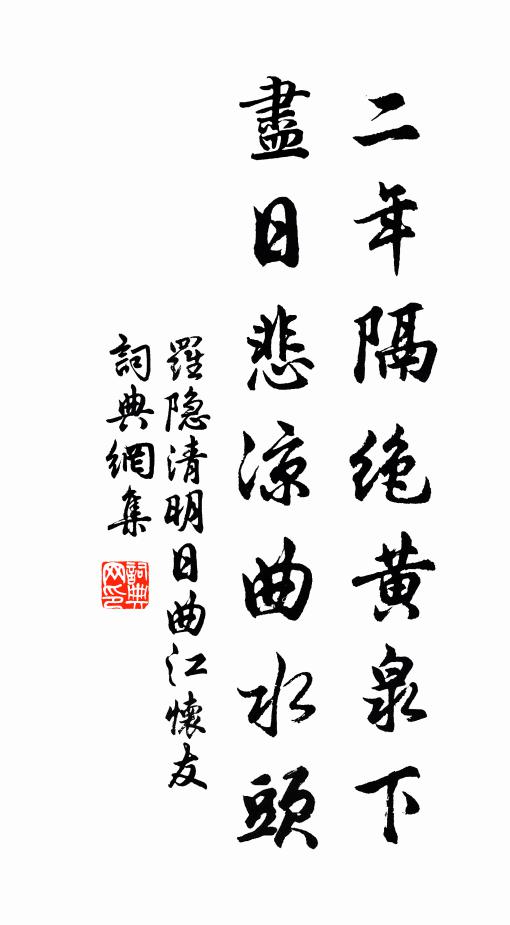 二年隔绝黄泉下
盡日悲凉曲水頭
羅隐清明日曲江懷友
詞典網集
詞典网印